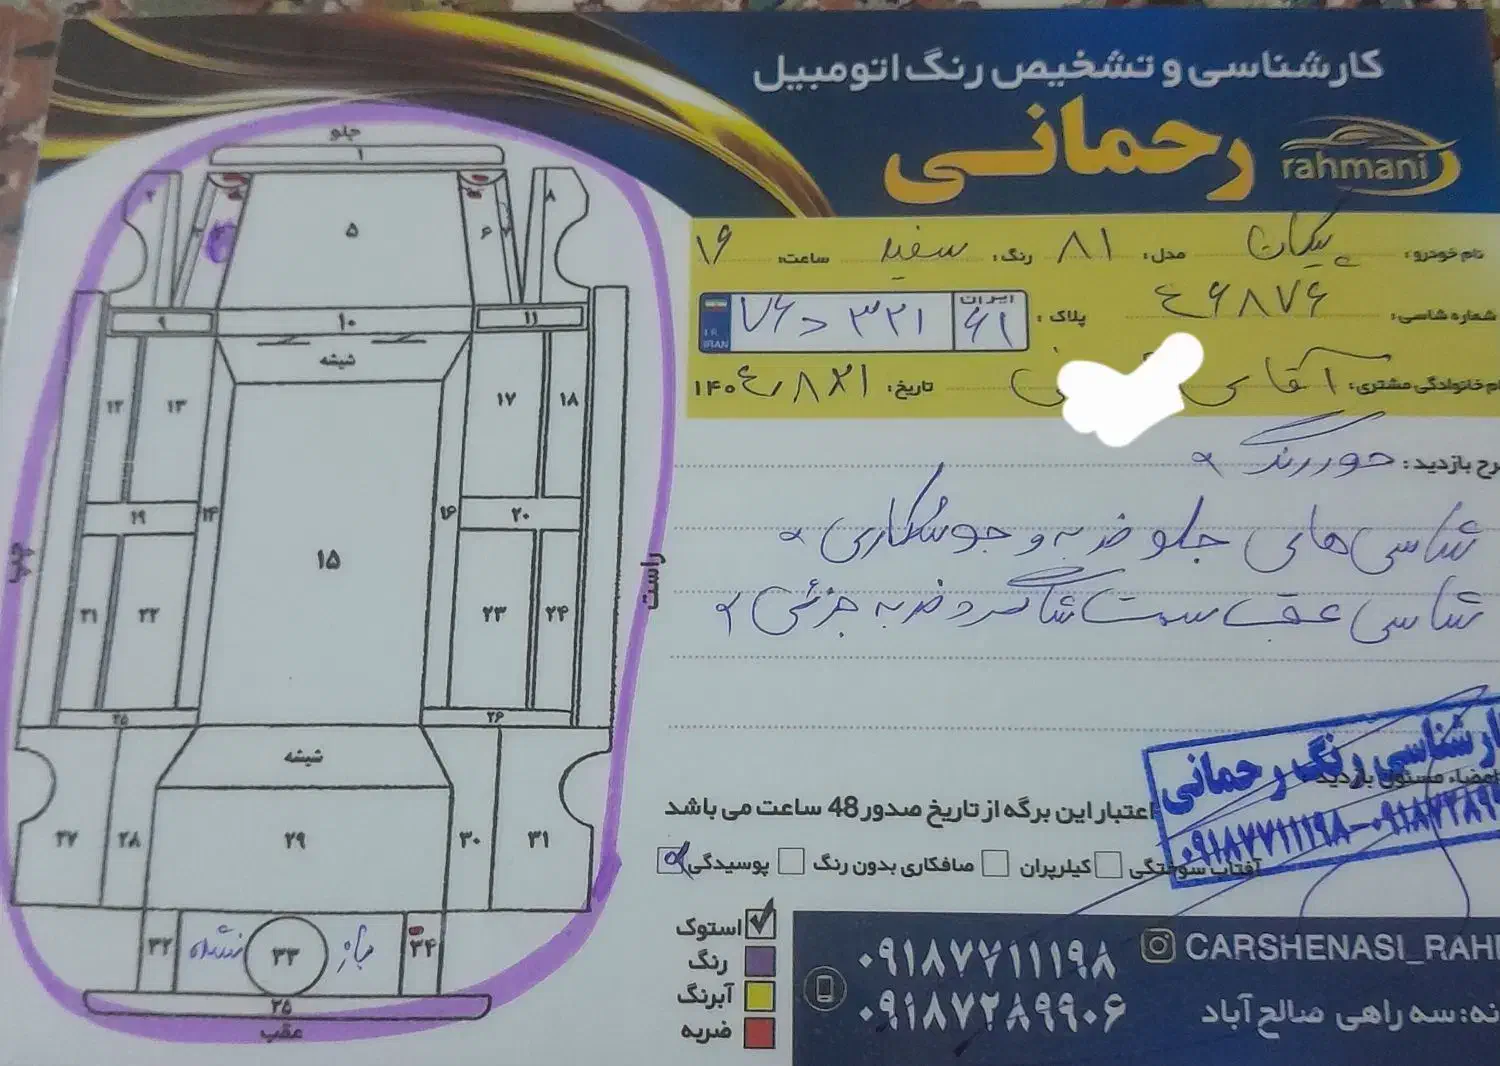 کارشناسی و تشخیص رنگ اتومبیل
رحمانی
rahmani
نام خودرو: پیکان مدل: ۸۱ رنگ: سفید ساعت: ۱۶
شماره شاسی: ۴۶۸۷۶
پلاک: ایران ۶۱ ۳۲۱ د ۷۶
I.R. IRAN
ام خانوادگی مشتری: آقای
تاریخ: ۱۴۰۴/۸/۲۱
رح بازدید: دور رنگ
شاسی های جلو ضربه و جوشکاری
شاسی عقب سمت شاگرد ضربه جزئی
ارشناسی رنگ رحمانی
امضاء مسئول بازدید
۰۹۱۸۷۷۱۱۱۹۸-۰۹۱۸۷۲۸۹۹
اعتبار این برگه از تاریخ صدور 48 ساعت می باشد
آفتاب سوختگی کیلرپران صافکاری بدون رنگ پوسیدگی
استوک
رنگ
آبرنگ
ضربه
۰۹۱۸۷۷۱۱۱۹۸
۰۹۱۸۷۲۸۹۹۰۶
CARSHENASI_RAH
نه: سه راهی صالح آباد
جلو
۱
۲ ۳ ۴ ۵ ۶ ۷ ۸
۹ ۱۰ ۱۱
شیشه
۱۲ ۱۳ ۱۷ ۱۸
۱۹ ۱۴ ۱۶ ۲۰
چپ ۱۵ راست
۲۱ ۲۲ ۲۳ ۲۴
۲۵ ۲۶
شیشه
۲۷ ۲۸ ۲۹ ۳۰ ۳۱
۳۲ ۳۳ ۳۴
باز نشده
۳۵
عقب